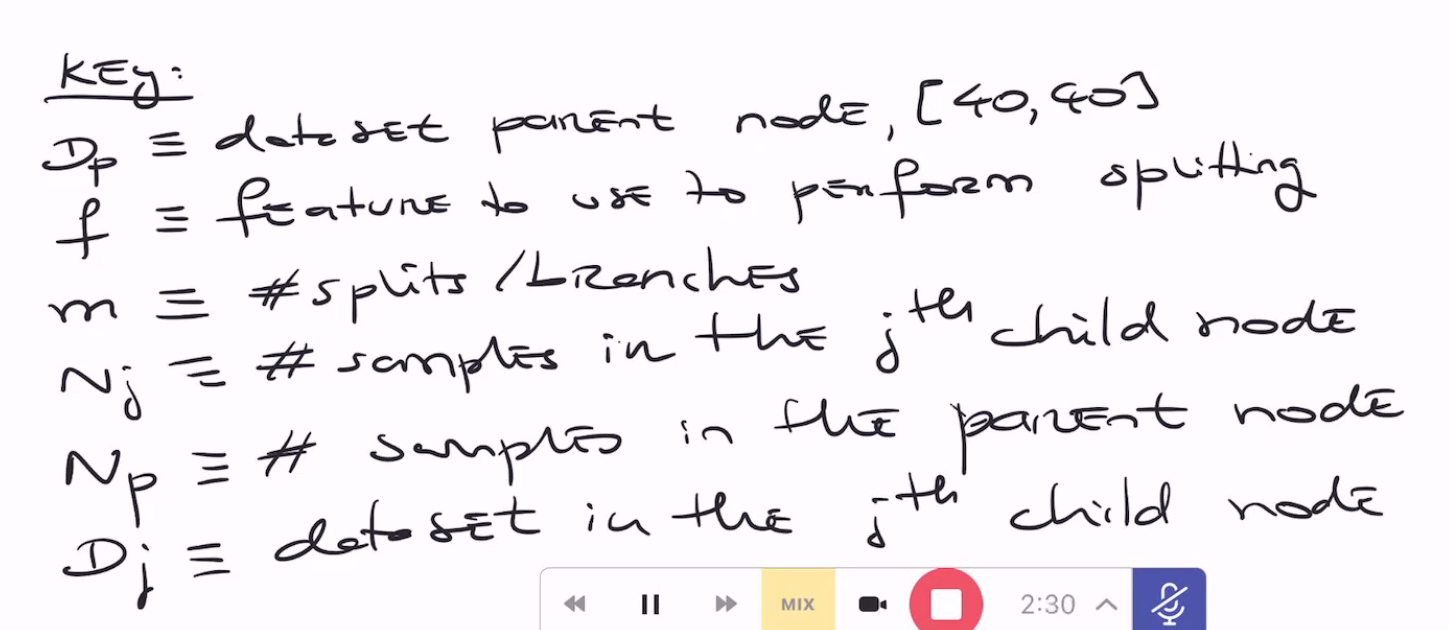 KEY:
Dp ≡ dataset parent node, [40,40]
f ≡ feature to use to perform splitting
m ≡ #splits/branches
Nj ≡ # samples in the jth child node
Np ≡ # samples in the parent node
Dj ≡ dataset in the jth child node
MIX
2:30